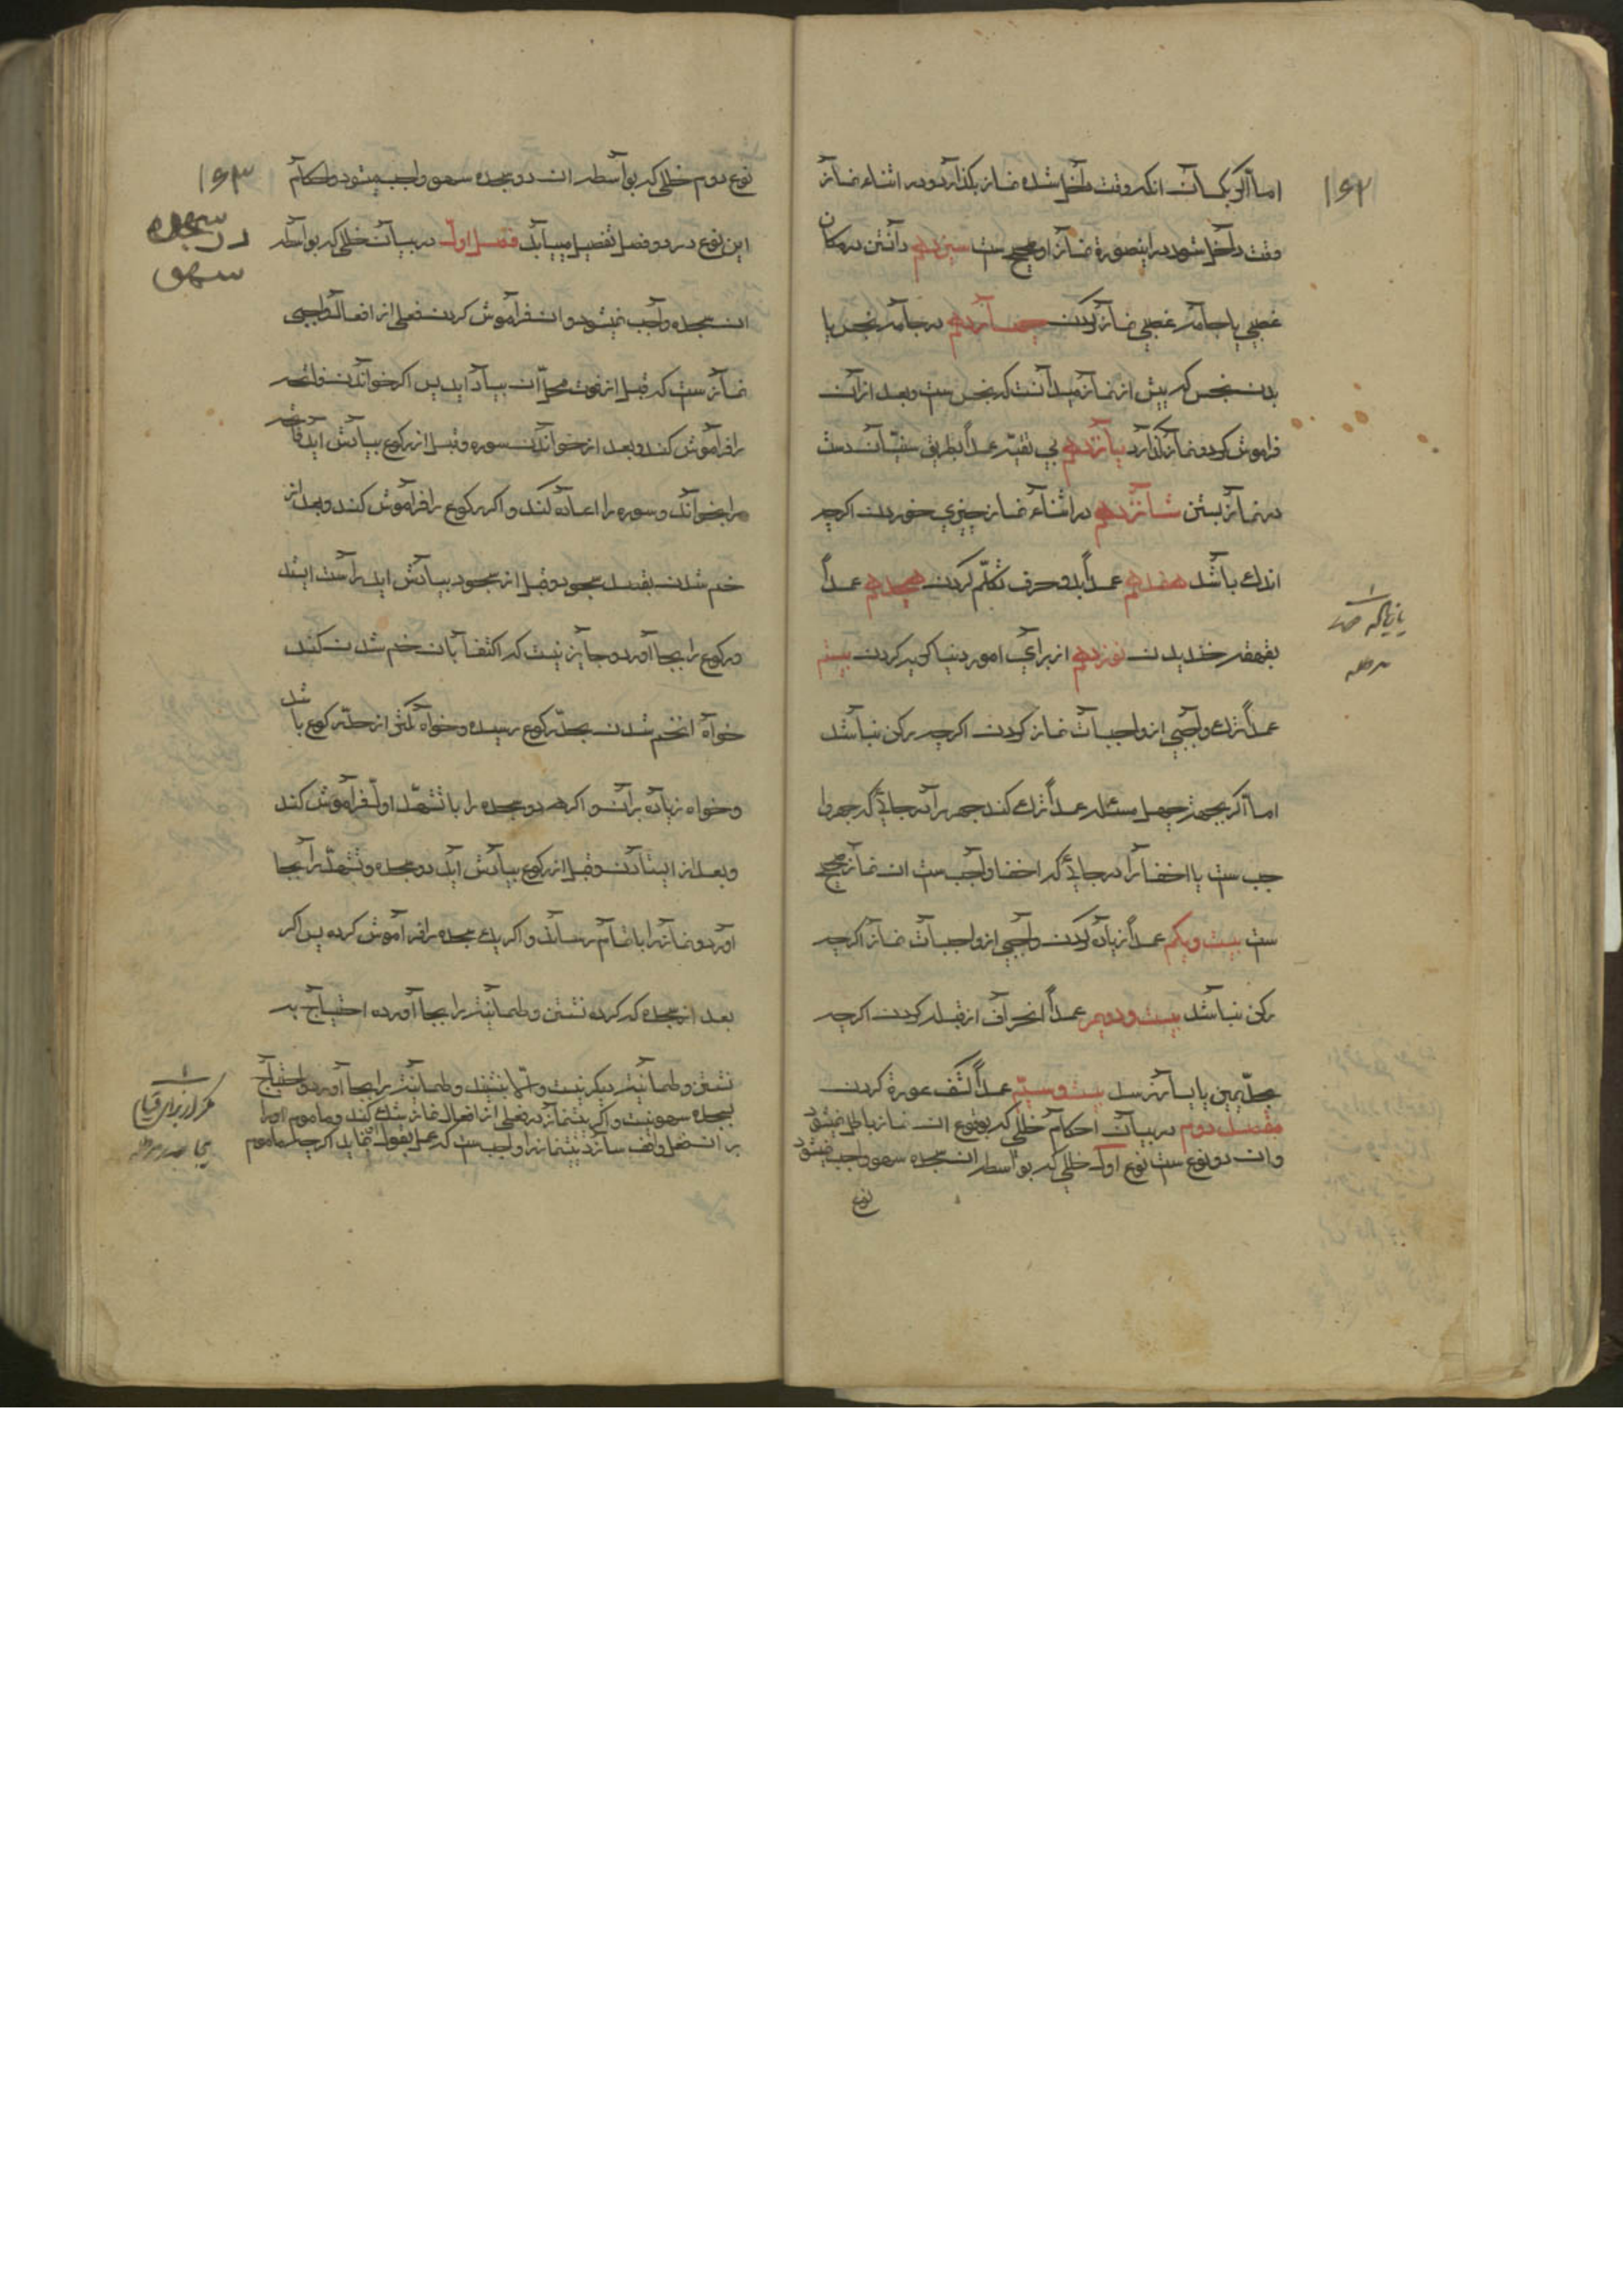 ۱۶۲
اما اگر بگمان انکه وقت داخل شده نماز بکذارد و در اثناء نماز
وقت داخل شود در اینصورة نماز او صحیح ست سیزدهم دانسته در مکان
غصبی یا جامه غصبی نماز کردن چهاردهم در جامه نجس یا
بدن نجس که پیش از نماز میدانست که نجس ست و بعد از ان
فراموش کرد و نماز کذارد پانزدهم بی تقیه عمداً بطریق سنیان دست
در نماز بستن شانزدهم در اثناء نماز چیزی خوردن اکرچه
اندك باشد هفدهم عمداً بدو حرف تکلّم کردن هجدهم عمداً
بقهقهه خندیدن نوزدهم از برای امور دنیا کریه کردن بیستم
عمداً ترك واجبی از واجبات نماز کردن اکرچه رکن نباشد
اما اکر بجهة جهل مسئله عمداً ترك کند جهر را در جائی که جهر وا
جب ست یا اخفا را در جائی که اخفا واجب ست ان نماز صحیح
ست بیست ویکم عمداً زیاده کردن واجبی از واجبات نماز اکرچه
رکن نباشد بیست ودویم عمداً انحراف از قبله کردن اکرچه
بحدّ یمین یا یسار نرسد بیست وسیّم عمداً کشف عورة کردن
مقصد دوم در بیان احکام خللی که بوقوع ان نماز باطل نمیشود
وان دو نوع ست نوع اول خللی که بواسطه ان سجده سهو واجب نمیشود
نوع
۱۶۳
نوع دوم خللی که بواسطه ان دو سجده سهو واجب میشود واحکام
در سجده
سهو
این نوع در دو فصل تفصیل مییابد فصل اول در بیان خللی که بواسطه
ان سجده واجب نمیشود وان فراموش کردن فعلی از افعال واجبی
نماز ست که قبل از فوت محل ان بیاد اید پس اکر خواندن فاتحه
را فراموش کند و بعد از خواندن سوره وقبل از رکوع بیادش اید فاتحه
را بخواند وسوره را اعاده کند واکر رکوع را فراموش کند وبعد از
خم شدن بقصد سجود وقبل از سجود بیادش اید راست ایستد
ورکوع را بجا آورد وجایز نیست که اکتفا بان خم شدن کند
خواه ان خم شدن بحدّ رکوع رسیده وخواه کمتر از حدّ رکوع باشد
وخواه زیاده بر ان واکر هر دو سجده را با تشهّد اول فراموش کند
وبعد از ایستادن وقبل از رکوع بیادش اید دو سجده وتشهّد را بجا
اورد و نماز را باتمام رساند واکر یك سجده را فراموش کرده پس اکر
بعد از سجده که کرده نشستن وطمانینه را بجا آورده احتیاج به
نشستن وطمانینه دیکر نیست والّا بنشیند وطمانینه را بجا آورد واحتیاج
بسجده سهو نیست واکر پیشنماز در فعلی از افعال نماز شك کند وماموم او را
بر ان فعل واقف سازد پیشنماز را واجب ست که عمل بقول نماید اکرچه ماموم